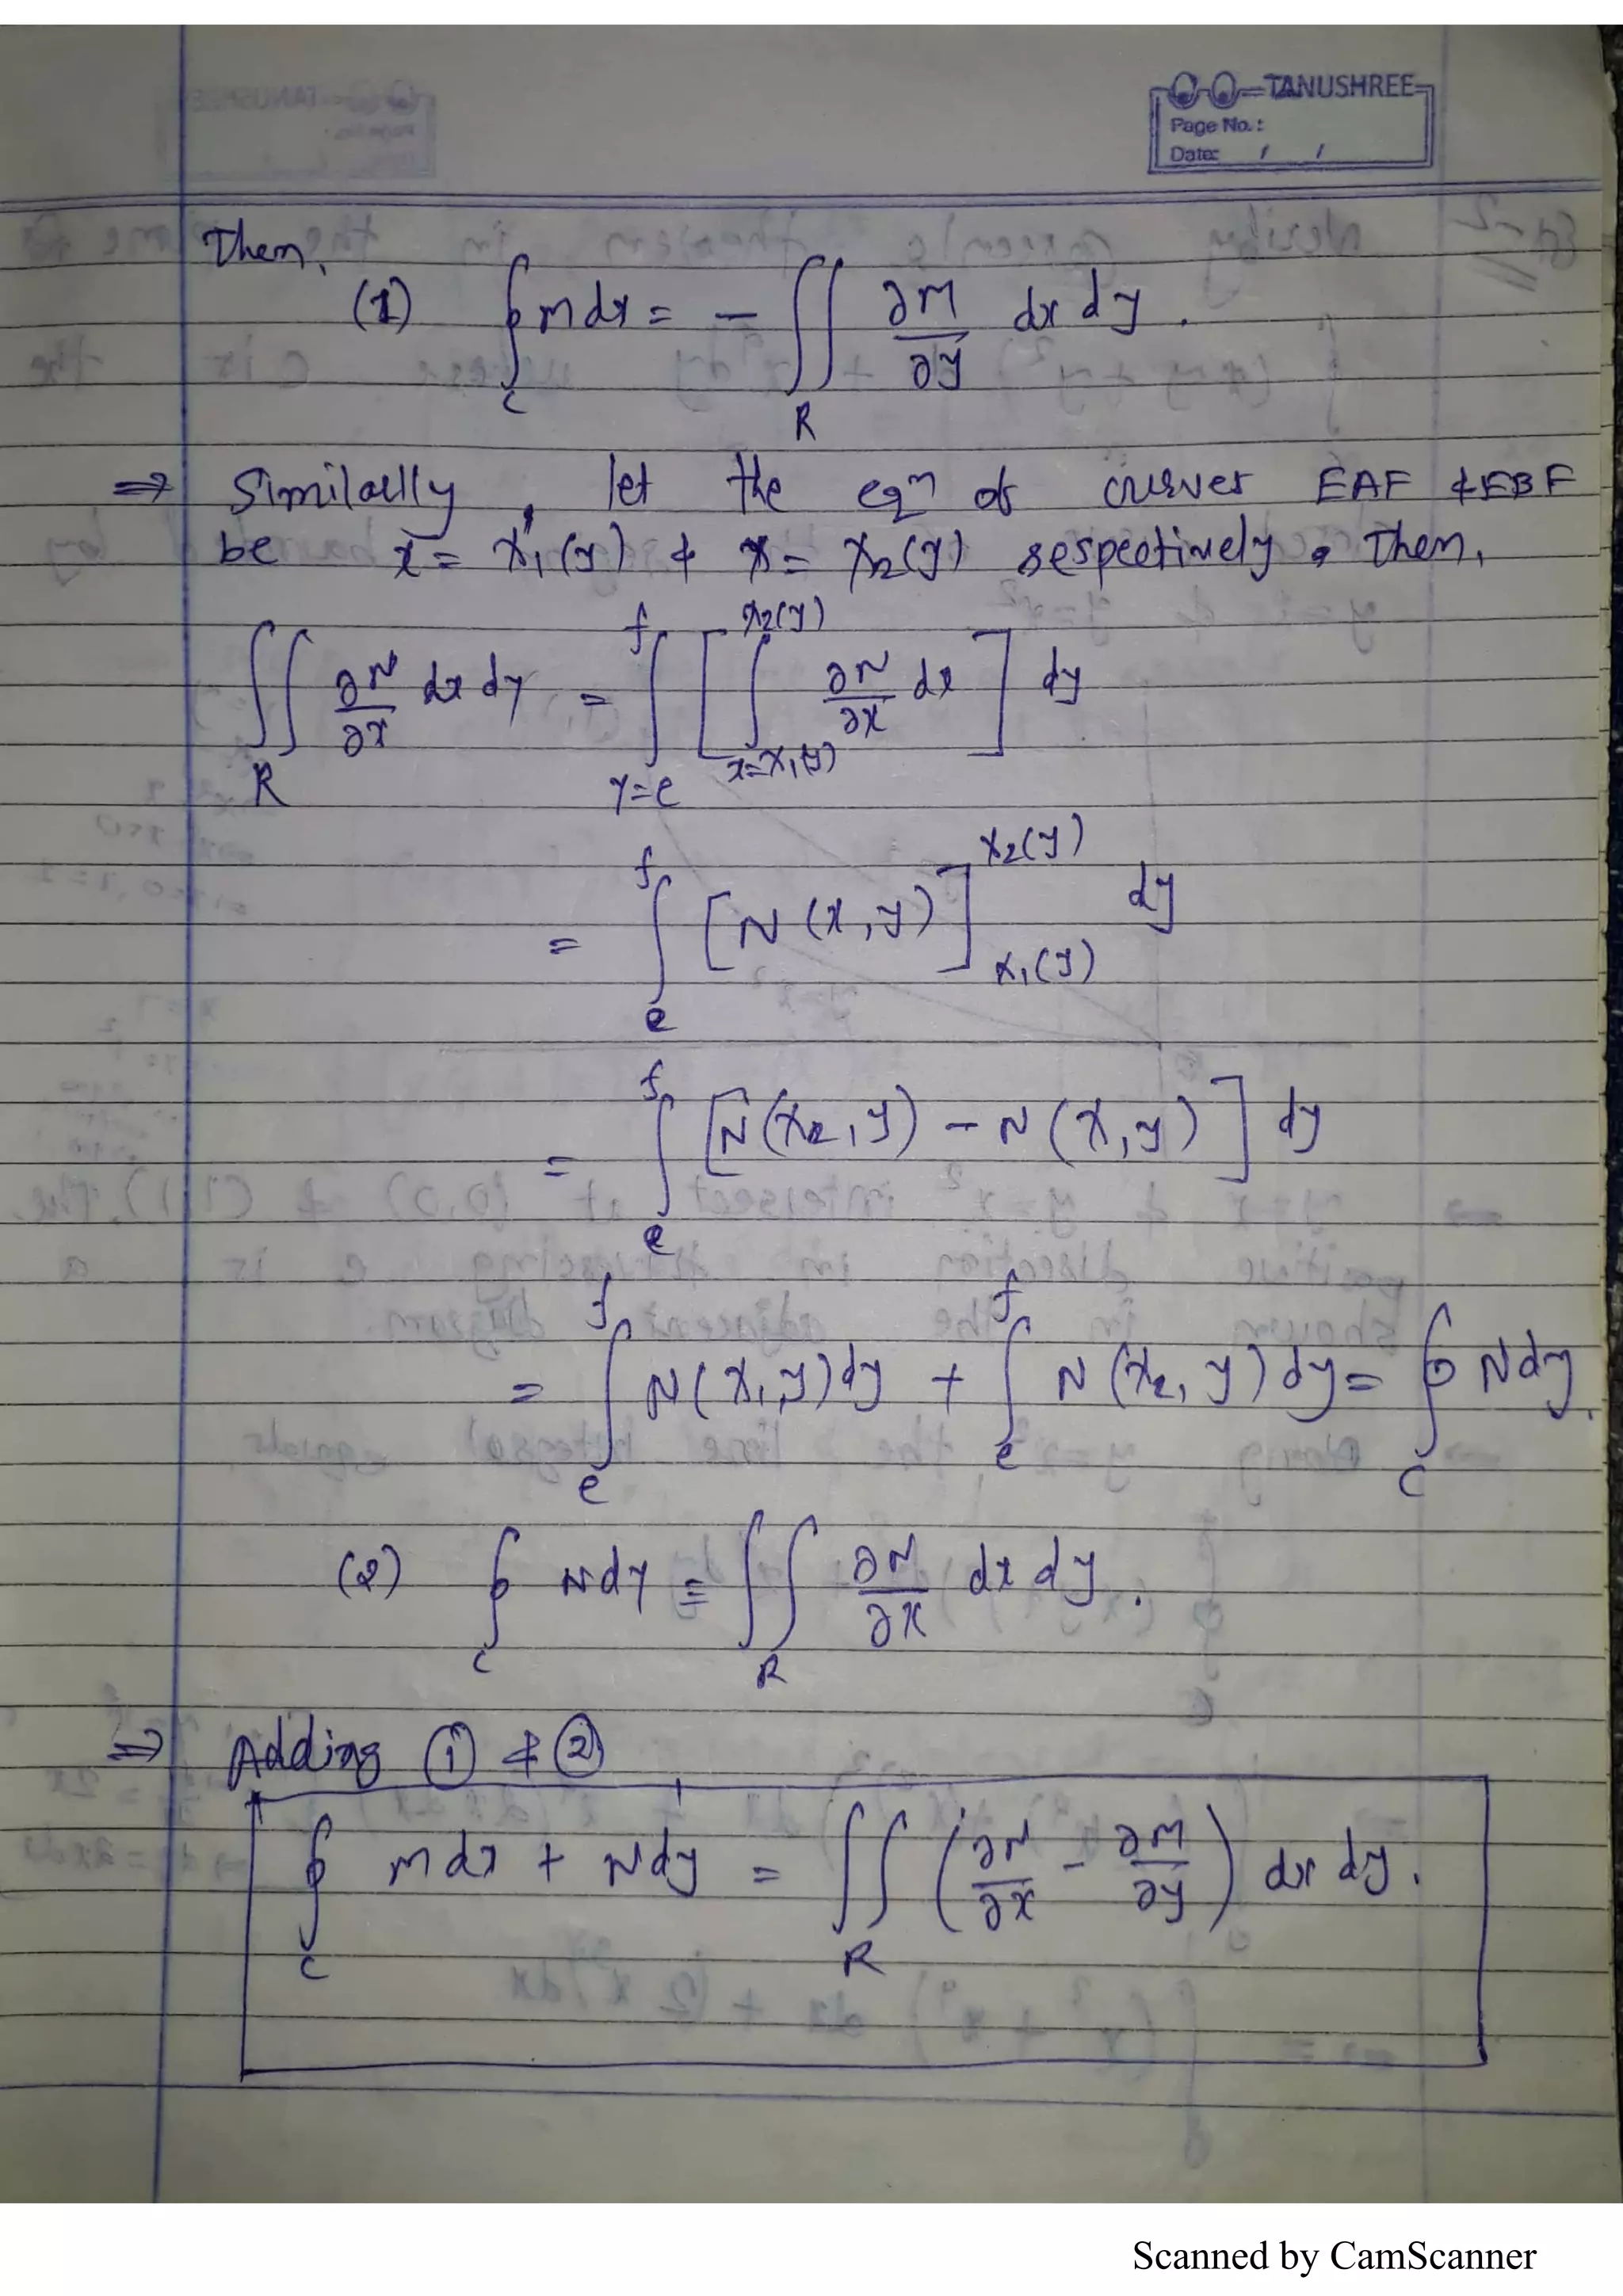 TANUSHREE
Page No.:
Date: / /
Then,
(1) ∮_C M dx = - ∬_R ∂M/∂y dx dy.
⇒ Similarly, let the eqn of curves EAF & EBF
be x = x₁(y) & x = x₂(y) respectively. Then,
∬_R ∂N/∂x dx dy = ∫_{y=e}^{f} [ ∫_{x=x₁(y)}^{x₂(y)} ∂N/∂x dx ] dy
= ∫_e^f [N(x,y)]_{x₁(y)}^{x₂(y)} dy
= ∫_e^f [N(x₂,y) - N(x,y)] dy
= ∫_e^f N(x₁,y) dy + ∫_e^f N(x₂,y) dy = ∮_C N dy.
(2) ∮_C N dy = ∬_R ∂N/∂x dx dy.
⇒ Adding ① & ②
∮_C M dx + N dy = ∬_R (∂N/∂x - ∂M/∂y) dx dy.
Scanned by CamScanner